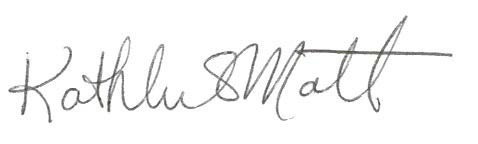 Kathleen S Matt